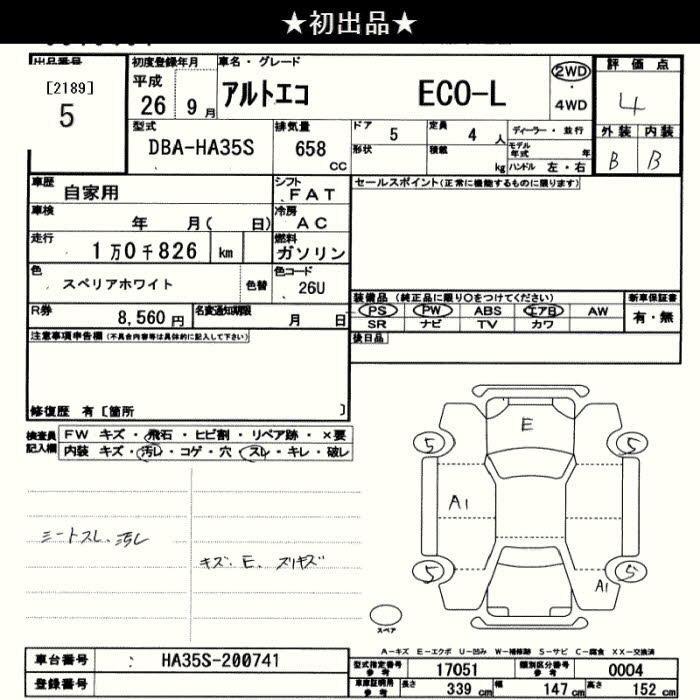 ★初出品★
出品番号
[2189]
5
初度登録年月
平成
26 年 9 月
車名・グレード
アルトエコ ECO-L
2WD
・
4WD
評価点
4
外装 内装
B B
型式
DBA-HA35S
排気量
658 CC
ドア 5
定員 4 人
ディーラー・並行
形状
積載 kg
モデル年式 年
ハンドル 左・右
車歴
自家用
シフト
FAT
セールスポイント(正常に機能するものに限ります)
車検
年 月( 日)
冷房
AC
走行
1万0千826 km
燃料
ガソリン
色
スペリアホワイト
色替
色コード
26U
装備品(純正品に限り○をつけてください)
新車保証書
PS PW ABS エアB AW
有・無
SR ナビ TV カワ
R券
8,560 円
名変通知期限
月 日
後日品
注意事項申告欄(不具合内容等は具体的に記入して下さい)
修復歴 有 [箇所 ]
検査員記入欄
FW キズ・飛石・ヒビ割・リペア跡・×要
内装 キズ・汚レ・コゲ・穴・スレ・キレ・破レ
シートスレ、汚レ
キズ・E、スリキズ
E
5 5
A1
5 5
A1
スペア
A-キズ E-エクボ U-凹み W-補修跡 S-サビ C-腐食 XX-交換済
車台番号
HA35S-200741
型式指定番号参考
17051
類別区分番号参考
0004
登録番号
車庫証明用参考
長さ 339 cm
幅 147 cm
高さ 152 cm